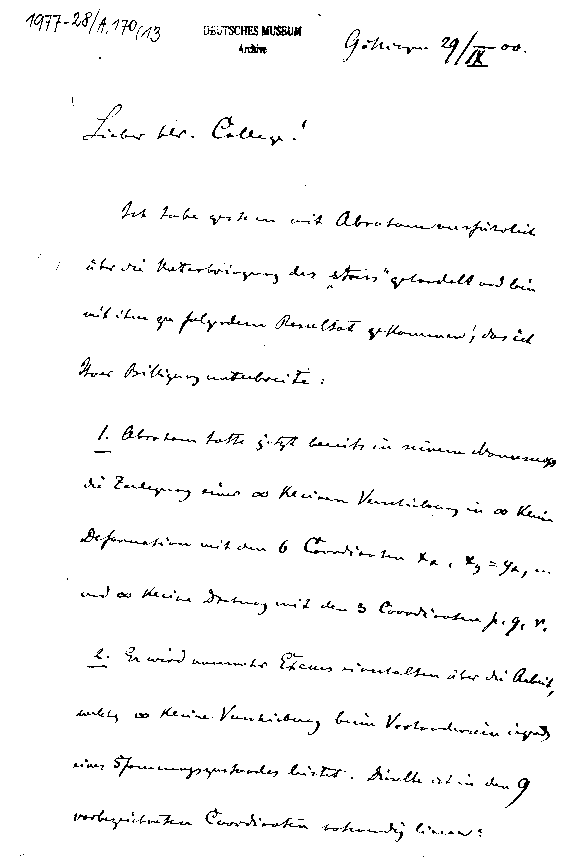 1977-28/A,170(13
DEUTSCHES MUSEUM
Archiv
Göttingen 29/IX 00.
Lieber Hr. College!
Ich habe gestern mit Abraham ausführlich
über die Unterbringung des „stress“ gehandelt und bin
mit ihm zu folgendem Resultat gekommen, das ich
Ihrer Billigung unterbreite:
1. Abraham hatte jetzt bereits in seinem Manuscript
die Zerlegung einer ∞ kleinen Verschiebung in ∞ kleine
Deformation mit den 6 Coordinaten xx, xy = yx, ...
und ∞ kleine Drehung mit den 3 Coordinaten p, q, r.
2. Er wird nunmehr Excurs einschalten über die Arbeit,
welche ∞ kleine Verschiebung beim Vorhandensein irgend
eines Spannungszustandes leistet. Dieselbe ist in den 9
vorbezeichneten Coordinaten nothwendig linear: